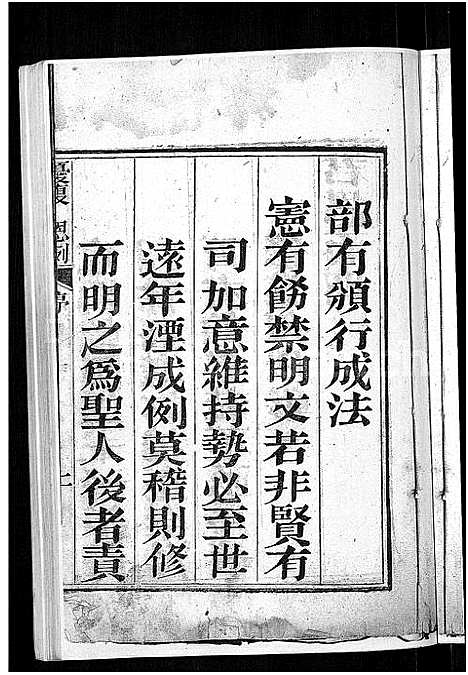 部有頒行成法
憲有飭禁明文若非賢有
司如意維持勢必至世
遠年湮成例莫稽則修
而明之為聖人後者責
恩例
序